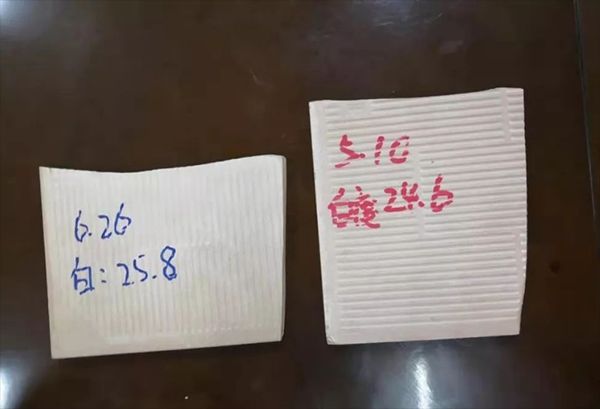 6.26
白: 25.8
5.10
白度24.6